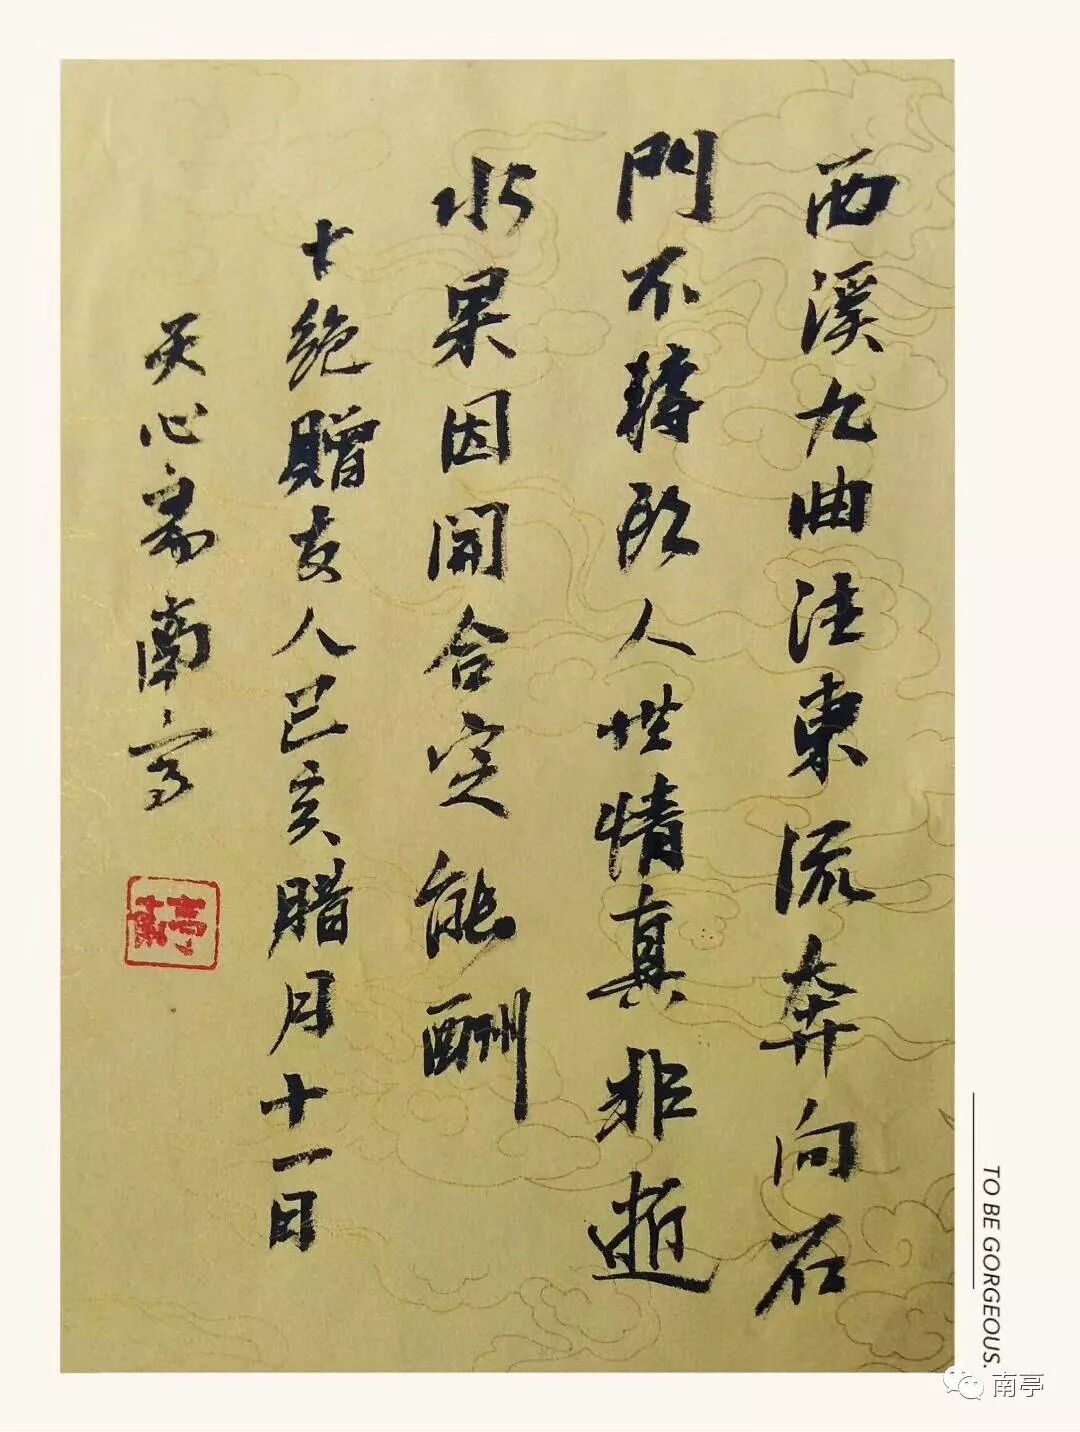 西溪九曲注東流奔向石
門不轉頭人世情真非逝
水果因開合定能酬
十絕贈友人己亥腊月十一日
天心齋南亭
TO BE GORGEOUS.
南亭